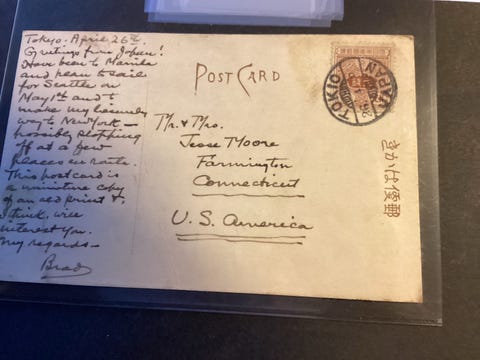 Tokyo. April 26th.
Greetings from Japan!
Have been to Manila
and plan to sail
for Seattle on
May 1st and to
make my leisurely
way to New York —
possibly stopping
off at a few
places en route.
This postcard is
a miniature copy
of an old print &
I think, will
interest you.
My regards —
Brad
POST CARD
Mr. & Mrs.
Jesse Moore
Farmington
Connecticut
U. S. America
TOKIO
JAPAN
きかは便郵